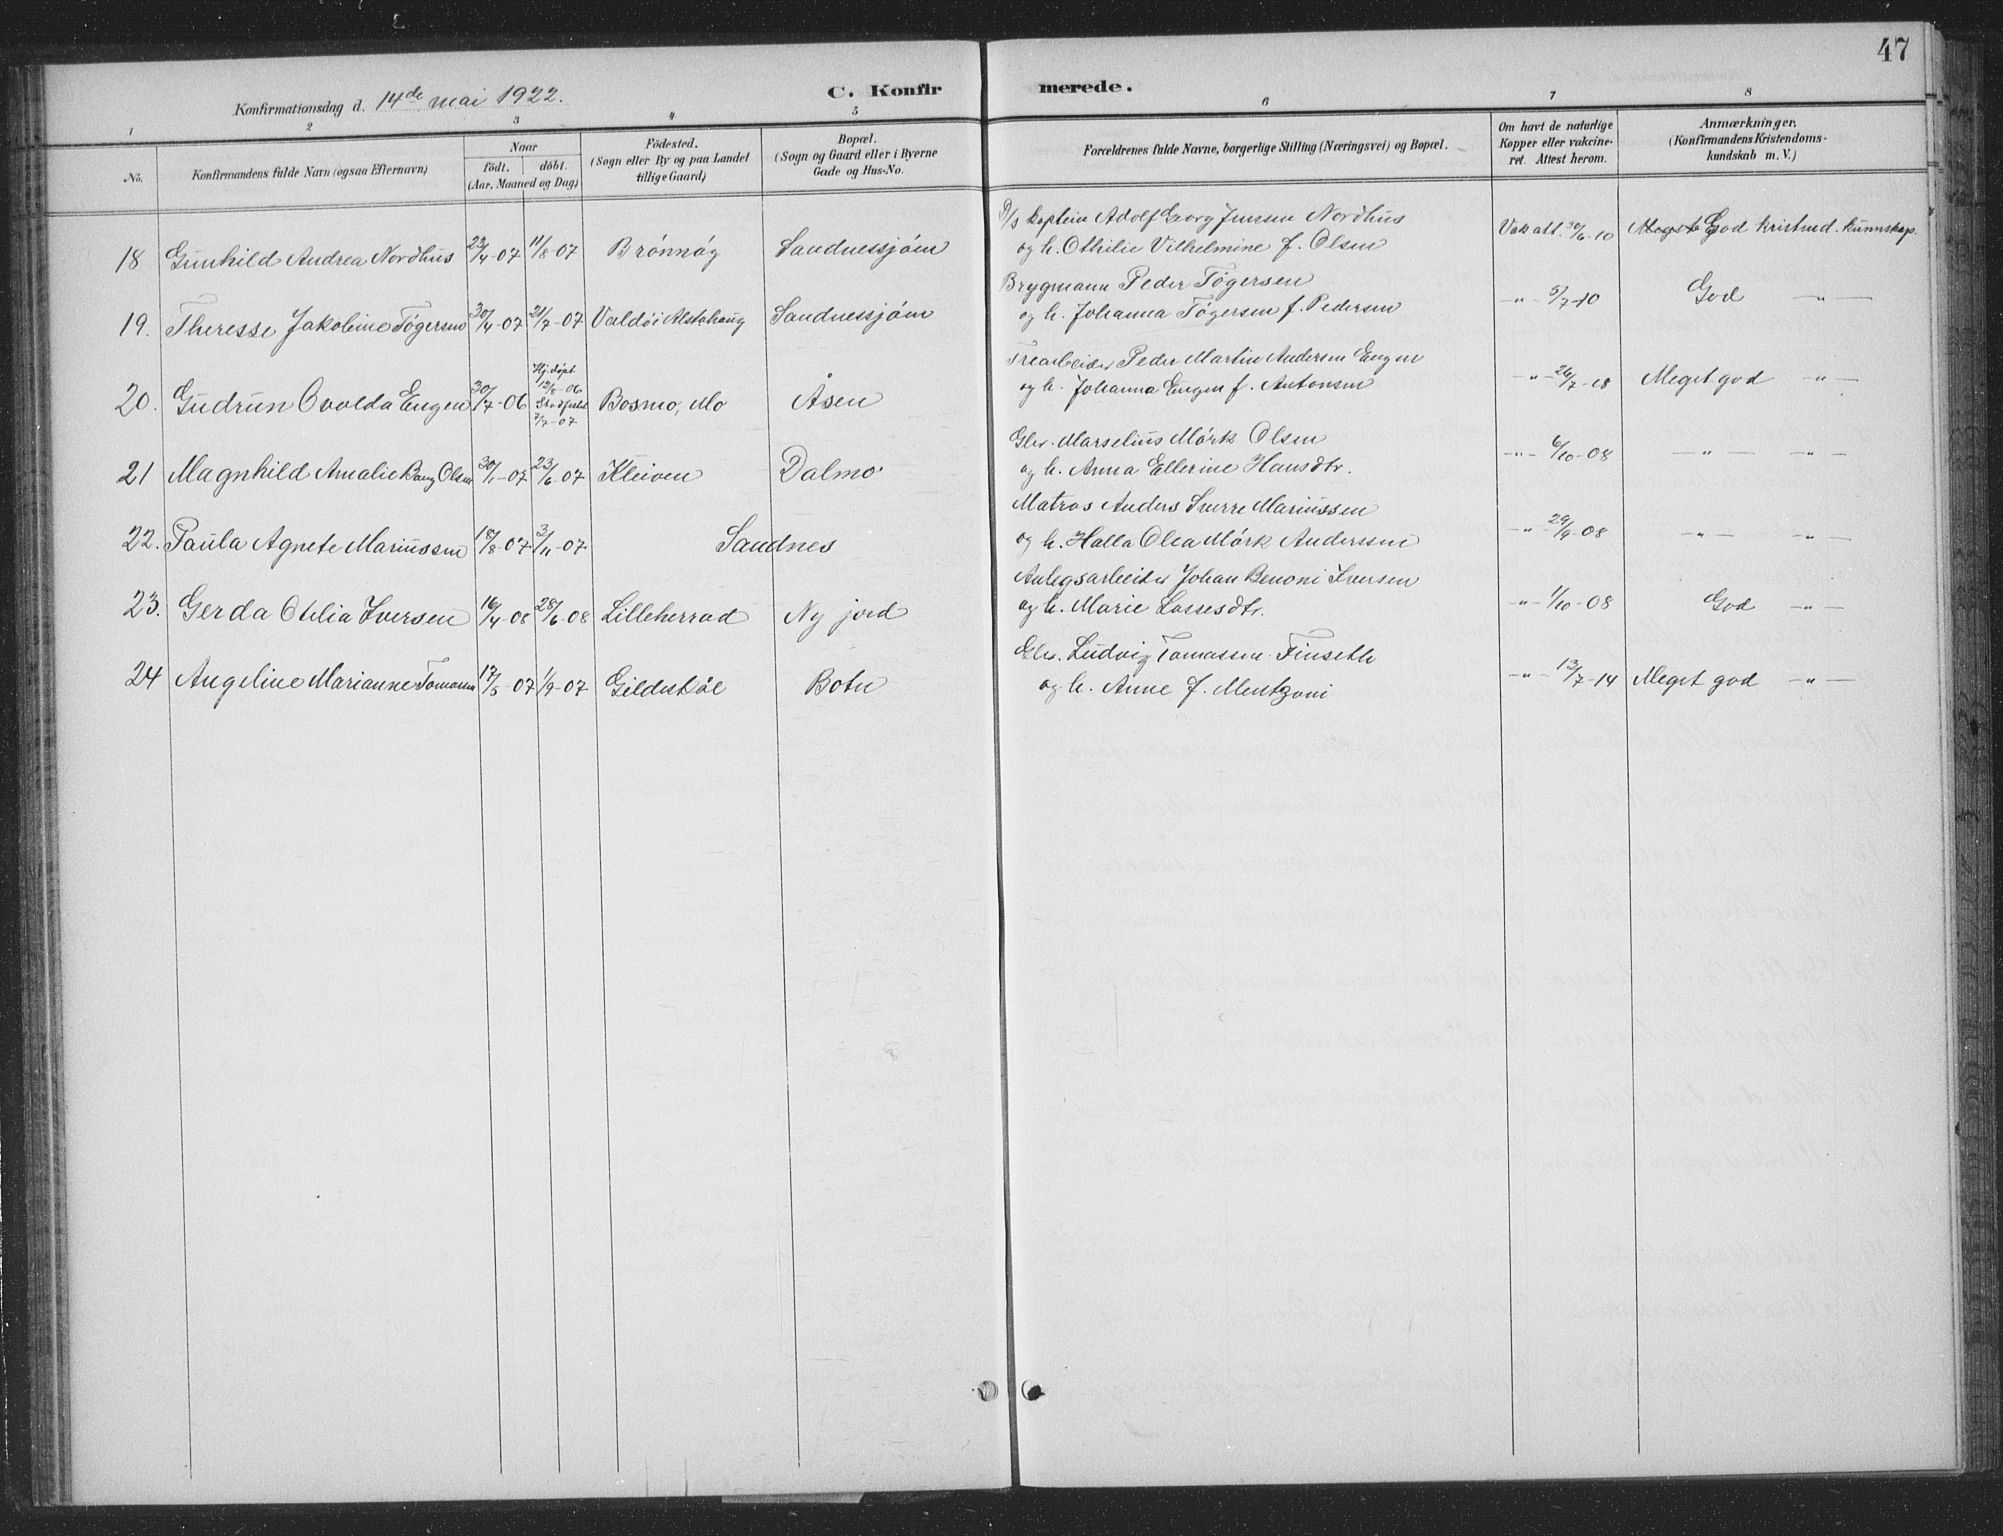 47
Konfirmationsdag d. 14de mai 1922.
C. Konfirmerede.
1 2 3 4 5 6 7 8
No.
Konfirmandens fulde Navn (ogsaa Efternavn)
Naar
födt. döbt.
(Aar, Maaned og Dag)
Födested.
(Sogn eller By og paa Landet
tillige Gaard)
Bopæl.
(Sogn og Gaard eller i Byerne
Gade og Hus-No.
Forældrenes fulde Navne, borgerlige Stilling (Næringsvei) og Bopæl.
Om havt de naturlige
Kopper eller vakcine-
ret. Attest herom.
Anmærkninger.
(Konfirmandens Kristendoms-
kundskab m. V.)
D/s kaptein Adolf Georg Jensen Nordhus
18 Gunhild Andrea Nordhus 23/4-07 11/8-07 Brönnög Sandnessjöen og h. Othilie Vilhelmine f. Olsen Vak att. 30/6-10 Meget God Kristend. kunnskap.
Brygmann Peder Tögersen
19. Theresse Jakobine Tögersen 30/4-07 21/7-07 Valdöi Alstahaug Sandnessjöen og h. Johanna Tögersen f. Pedersen -"- 5/7-10 God -"-
Trearbeider Peder Martin Andersen Engen
20. Gudrun Ovolda Engen 30/7-06 Hj.döpt 12/8-06 7/7-07 Bosmo, Mo Åsen og h. Johanna Engen f. Antonsen -"- 26/7-18 Meget god -"-
Gbr. Marselius Mörk Olsen
21 Magnhild Amalie Bang Olsen 30/1-07 23/6-07 Kleiven Dalmo og h. Anna Ellerine Hansdtr. -"- 6/10-08 -"- -"-
Matros Anders Sverre Mariussen
22. Paula Agnete Mariussen 18/8-07 3/11-07 Sandnes og h. Halla Olea Mörk Anderssen -"- 29/9-08 -"- -"-
Anlegsarbeider Johan Benoni Iversen
23. Gerda Otilia Iversen 16/4-08 28/6-08 Lilleherrad Ny jord og h. Marie Lassesdtr. -"- 1/10-08 God -"-
Gbr. Ludvig Tomassen Finseth
24 Angeline Marianne Tomassen 17/5-07 1/9-07 Gildeskål Botn og h. Anne f. Mentzoni -"- 13/7-14 Meget god -"-